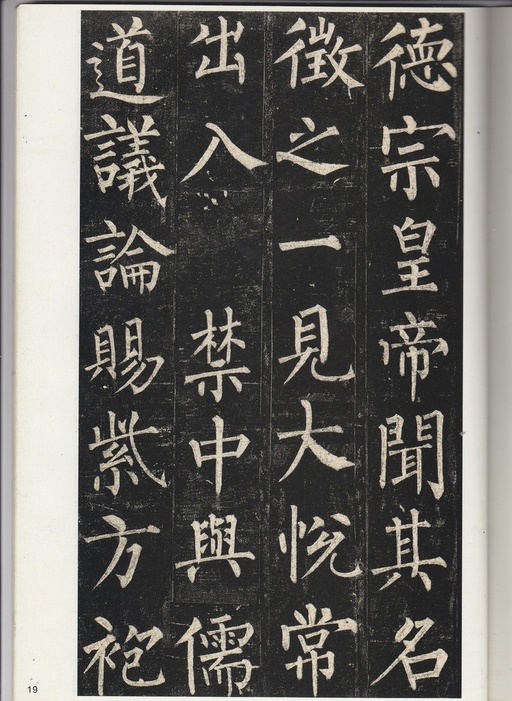 德宗皇帝聞其名
徵之一見大悅常
出入禁中與儒
道議論賜紫方袍
19